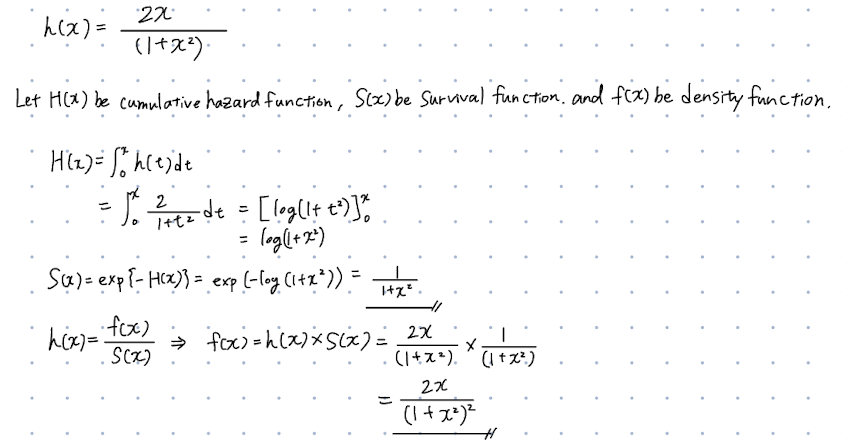 h(x) = 2x / (1+x²)
Let H(x) be cumulative hazard function, S(x) be Survival function. and f(x) be density function.
H(x) = ∫₀ˣ h(t)dt
= ∫₀ˣ 2 / 1+t² dt = [log(1+t²)]₀ˣ
= log(1+x²)
S(x) = exp{-H(x)} = exp(-log(1+x²)) = 1 / 1+x²
h(x) = f(x) / S(x) ⇒ f(x) = h(x) × S(x) = 2x / (1+x²) × 1 / (1+x²)
= 2x / (1+x²)²